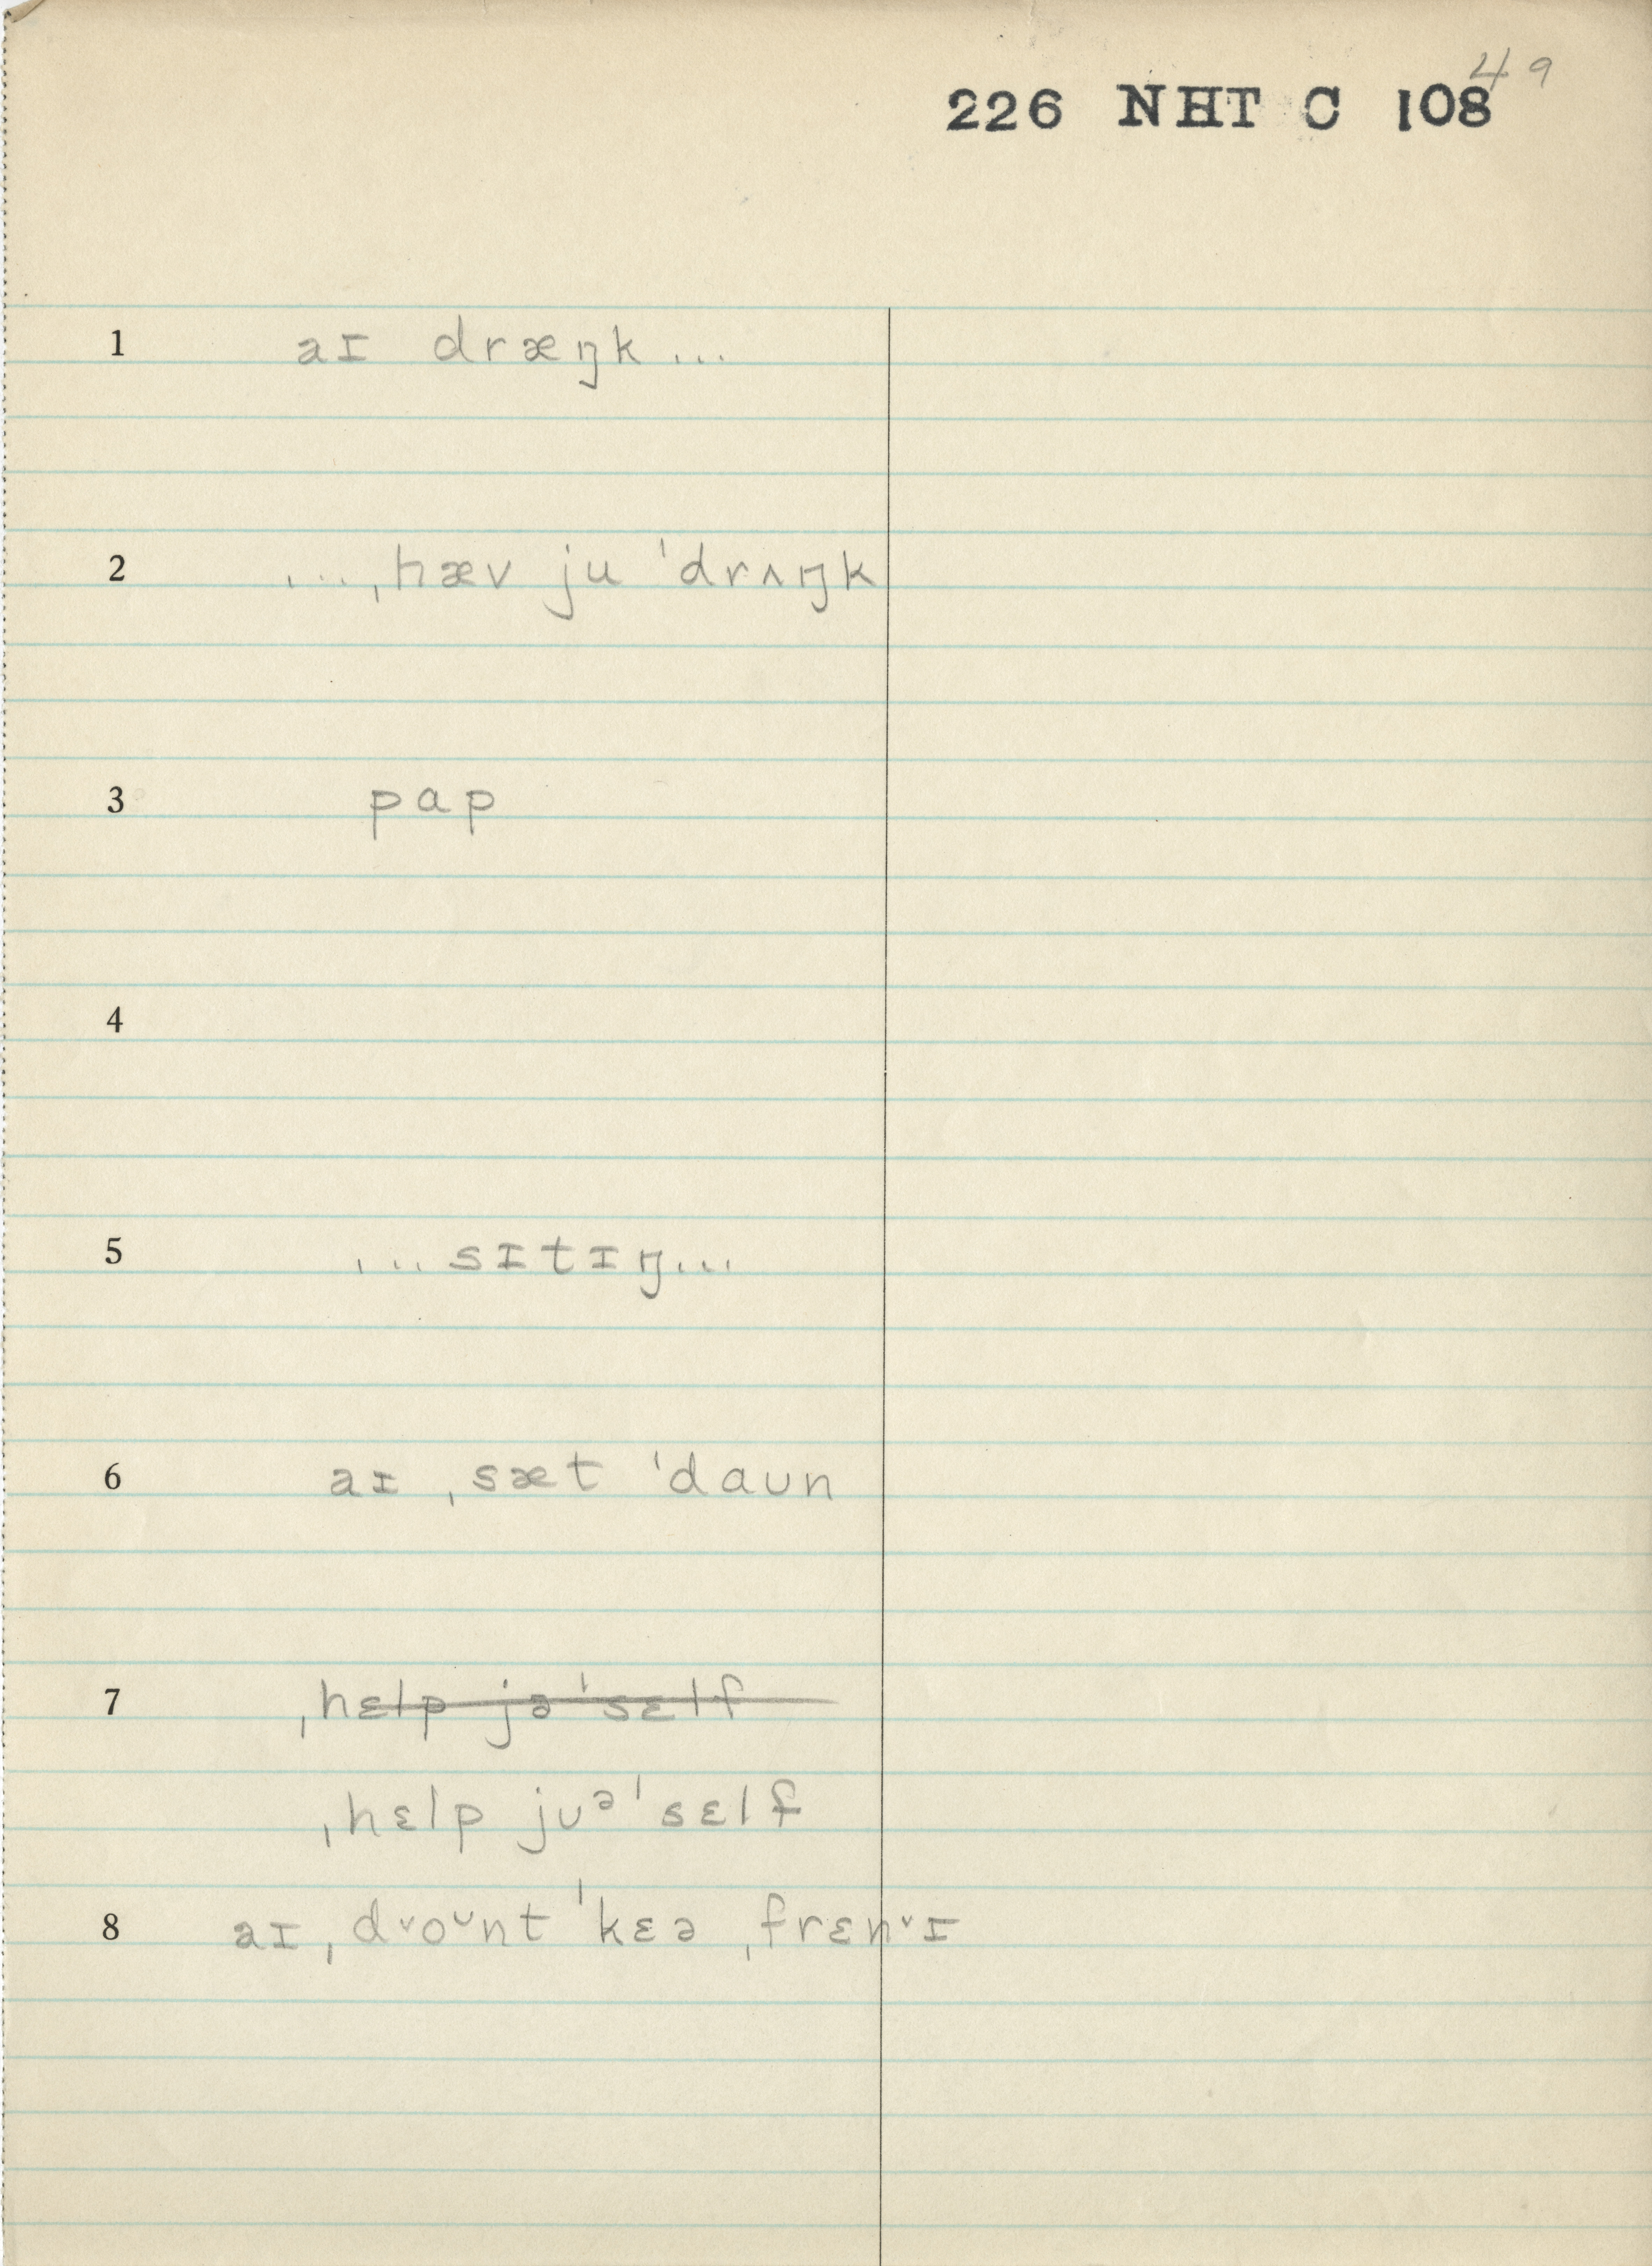 49
226 NHT C 108
1 aɪ dræŋk...
2 ...ˌhæv ju ˈdrʌŋk
3 pap
4
5 ...sɪtɪŋ...
6 aɪ ˌsæt ˈdaʊn
7 ˌhɛlp jəˈsɛlf
ˌhɛlp jʊᵊˈsɛlf
8 aɪ ˌd˅oᶷnt ˈkɛə ˌfrɛn˅ɪ